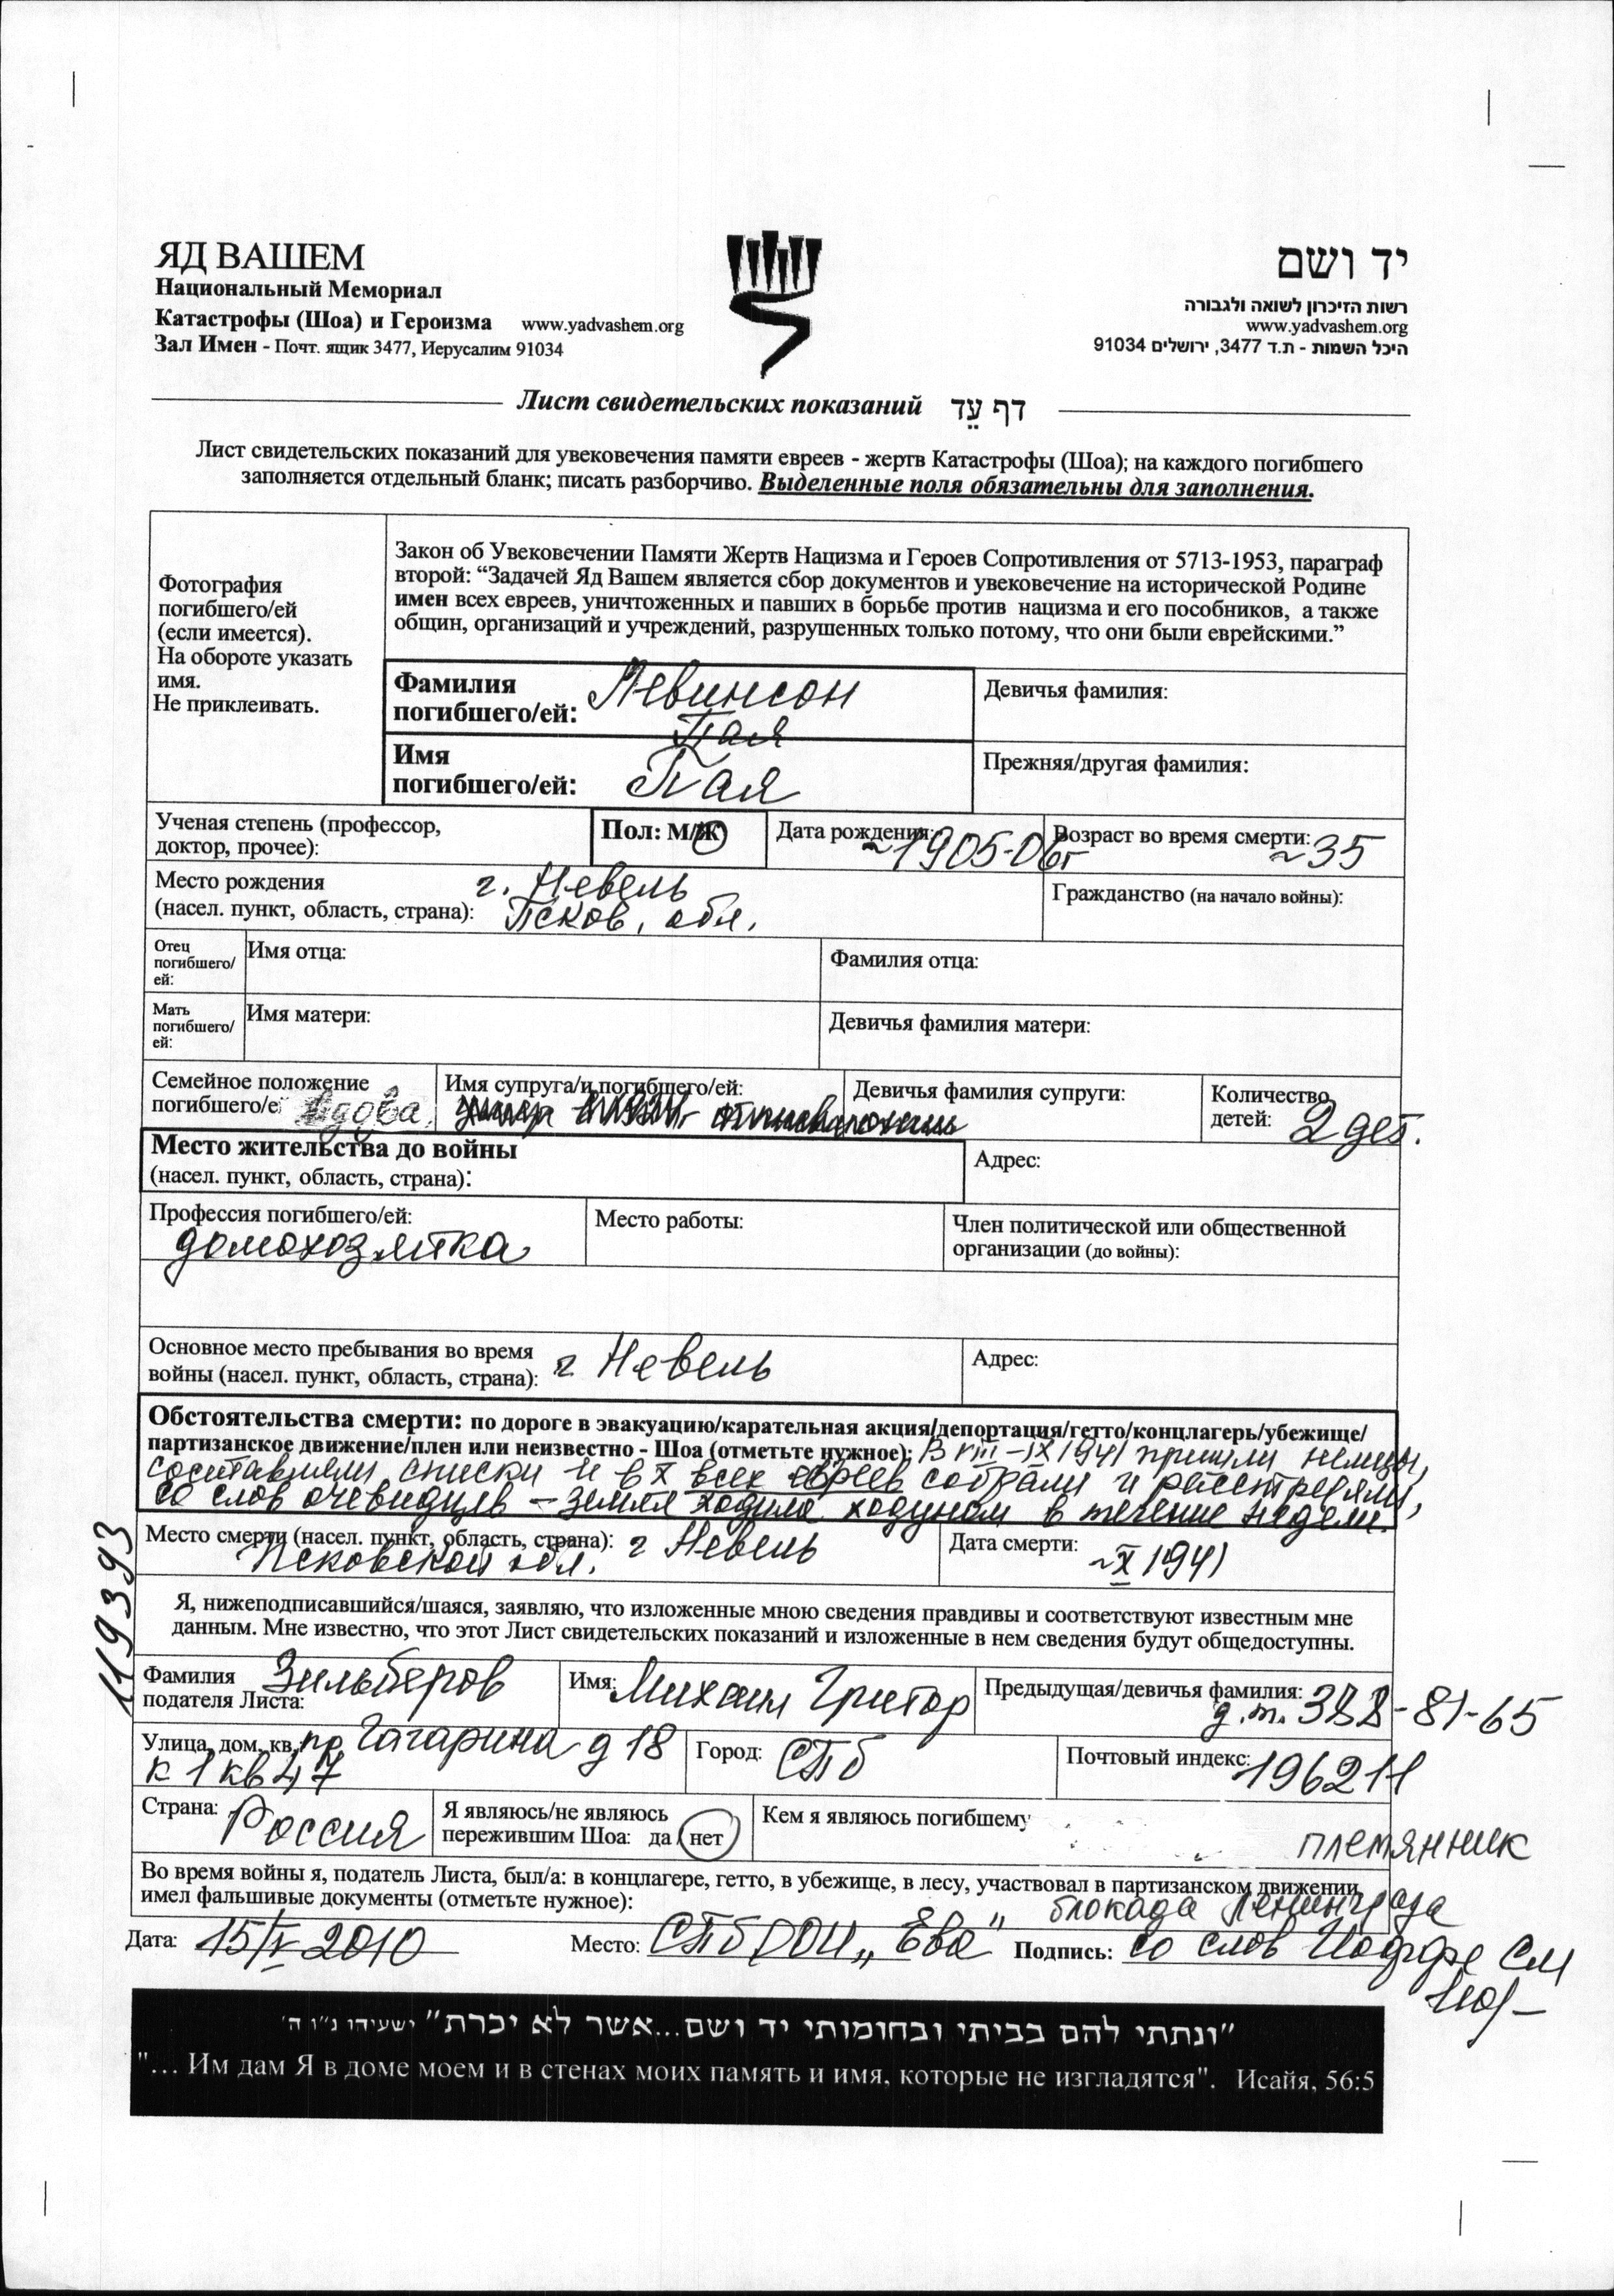 ЯД ВАШЕМ
Национальный Мемориал
Катастрофы (Шоа) и Героизма www.yadvashem.org
Зал Имен - Почт. ящик 3477, Иерусалим 91034
יד ושם
רשות הזיכרון לשואה ולגבורה
www.yadvashem.org
היכל השמות - ת.ד 3477, ירושלים 91034
Лист свидетельских показаний דף עֵד
Лист свидетельских показаний для увековечения памяти евреев - жертв Катастрофы (Шоа); на каждого погибшего
заполняется отдельный бланк; писать разборчиво. Выделенные поля обязательны для заполнения.
Фотография
погибшего/ей
(если имеется).
На обороте указать
имя.
Не приклеивать.
Закон об Увековечении Памяти Жертв Нацизма и Героев Сопротивления от 5713-1953, параграф
второй: “Задачей Яд Вашем является сбор документов и увековечение на исторической Родине
имен всех евреев, уничтоженных и павших в борьбе против нацизма и его пособников, а также
общин, организаций и учреждений, разрушенных только потому, что они были еврейскими.”
Фамилия
погибшего/ей: Левинсон
Пая
Девичья фамилия:
Имя
погибшего/ей: Пая
Прежняя/другая фамилия:
Ученая степень (профессор,
доктор, прочее):
Пол: М/Ж
Дата рождения: ~1905-06г
Возраст во время смерти: ~35
Место рождения г. Невель
(насел. пункт, область, страна): Псков. обл.
Гражданство (на начало войны):
Отец
погибшего/
ей:
Имя отца:
Фамилия отца:
Мать
погибшего/
ей:
Имя матери:
Девичья фамилия матери:
Семейное положение
погибшего/е вдова
Имя супруга/и погибшего/ей:
Девичья фамилия супруги:
Количество
детей: 2 дет.
Место жительства до войны
(насел. пункт, область, страна):
Адрес:
Профессия погибшего/ей:
домохозяйка
Место работы:
Член политической или общественной
организации (до войны):
Основное место пребывания во время
войны (насел. пункт, область, страна): г Невель
Адрес:
Обстоятельства смерти: по дороге в эвакуацию/карательная акция/депортация/гетто/концлагерь/убежище/
партизанское движение/плен или неизвестно - Шоа (отметьте нужное): В VIII-IX 1941 пришли немцы,
составляли списки и в X всех евреев собрали и расстреляли,
со слов очевидцев - земля ходила ходуном в течение недели.
Место смерти (насел. пункт, область, страна): г Невель
Псковской обл.
Дата смерти:
~X 1941
119393
Я, нижеподписавшийся/шаяся, заявляю, что изложенные мною сведения правдивы и соответствуют известным мне
данным. Мне известно, что этот Лист свидетельских показаний и изложенные в нем сведения будут общедоступны.
Фамилия
подателя Листа: Зильберов
Имя: Михаил Григор
Предыдущая/девичья фамилия:
д.т. 388-81-65
Улица, дом, кв. пр Гагарина д 18
к 1 кв 47
Город: СПб
Почтовый индекс: 196211
Страна: Россия
Я являюсь/не являюсь
пережившим Шоа: да/нет
Кем я являюсь погибшему
племянник
Во время войны я, податель Листа, был/а: в концлагере, гетто, в убежище, в лесу, участвовал в партизанском движении,
имел фальшивые документы (отметьте нужное): блокада Ленинграда
Дата: 15/V 2010 Место: СПб РОИ „Ева“ Подпись: со слов Иоффе СМ
"ונתתי להם בביתי ובחומותי יד ושם...אשר לא יכרת" ישעיהו נ"ו ה'
"... Им дам Я в доме моем и в стенах моих память и имя, которые не изгладятся". Исайя, 56:5